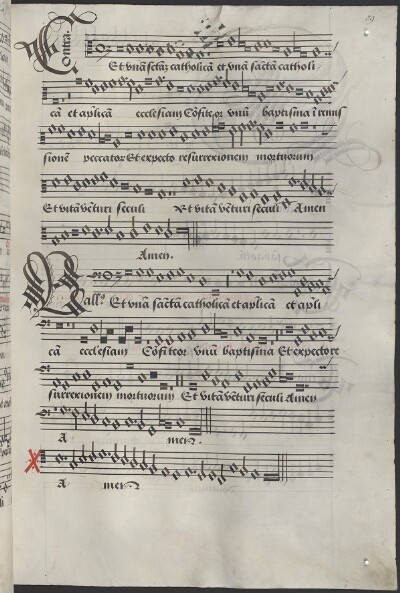 Contra.
Et vnã sctãz catholicã et vnã sãctã catholi
cã et aplicã ecclesiam Cõfiteor vnũ baptisma ĩ remis
sionẽ peccatoz Et expecto resurrexionem mortuorum
Et vitã vẽturi seculi Et vitã vẽturi seculi Amen
Amen.
Bassꝰ Et vnã sãctã catholicã et aplicã et apli
cã ecclesiam Cõfiteor vnũ baptisma Et expecto re
surrexionem mortuorum Et vitã vẽturi seculi Amen
A men.
A men